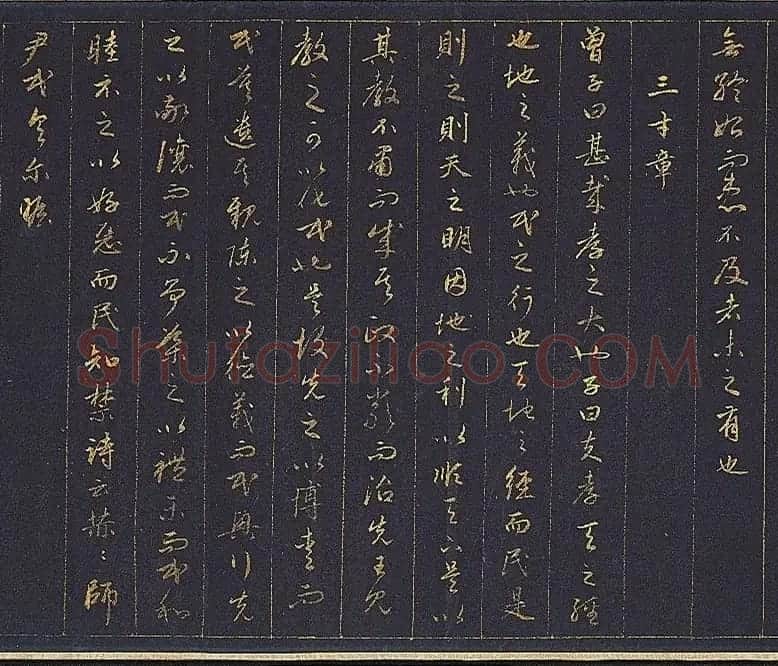 無終始而患不及者未之有也
三才章
曾子曰甚哉孝之大也子曰夫孝天之經
也地之義也民之行也天地之經而民是
則之則天之明因地之利以順天下是以
其教不肅而成其政不嚴而治先王見
教之可以化民也是故先之以博愛而
民莫遺其親陳之以德義而民興行先
之以敬讓而民不爭導之以禮樂而民和
睦示之以好惡而民知禁詩云赫〻師
尹民具爾瞻
Shufaziliao.COM